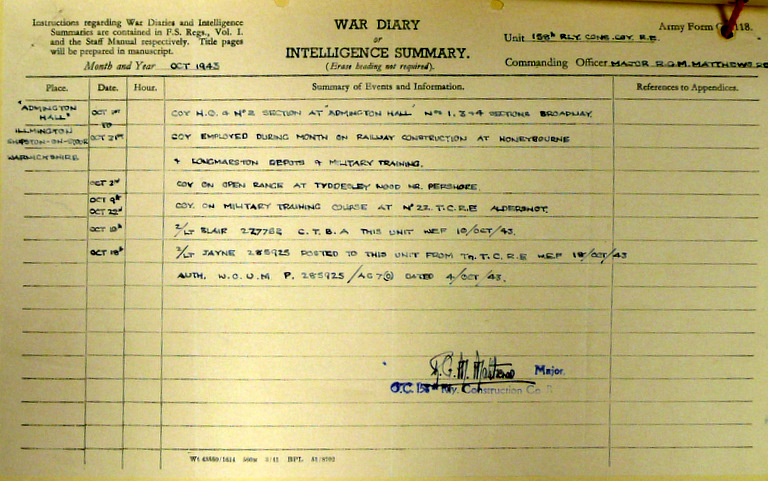 Instructions regarding War Diaries and Intelligence
Summaries are contained in F.S. Regs., Vol. I.
and the Staff Manual respectively. Title pages
will be prepared in manuscript.
Month and Year OCT 1943
WAR DIARY
or
INTELLIGENCE SUMMARY.
(Erase heading not required).
Army Form 118.
Unit 158th RLY. CONS. COY. R.E.
Commanding Officer MAJOR R.G.M. MATTHEWS RE
Place. Date. Hour. Summary of Events and Information. References to Appendices.
"ADMINGTON HALL" OCT 1st COY H.Q. & No 2 SECTION AT "ADMINGTON HALL" Nos 1, 3 & 4 SECTIONS BROADWAY.
ILLMINGTON TO
SHIPSTON-ON-STOUR OCT 31st COY EMPLOYED DURING MONTH ON RAILWAY CONSTRUCTION AT HONEYBOURNE
WARWICKSHIRE & LONGMARSTON DEPOTS & MILITARY TRAINING.
OCT 2nd COY ON OPEN RANGE AT TYDDESLEY WOOD NR. PERSHORE.
OCT 9th
OCT 22nd COY. ON MILITARY TRAINING COURSE AT No 22. T.C.R.E ALDERSHOT.
OCT 10th 2/LT BLAIR 277762 C.T.B.A THIS UNIT WEF 10/OCT/43.
OCT 18th 2/LT JAYNE 285925 POSTED TO THIS UNIT FROM T.C.R.E W.E.F 18/OCT/43
AUTH. W.O.U.M. P. 285925/AG7 DATED 4/OCT/43.
R.G.M. Matthews Major.
O.C. 158th Rly. Construction Co. R